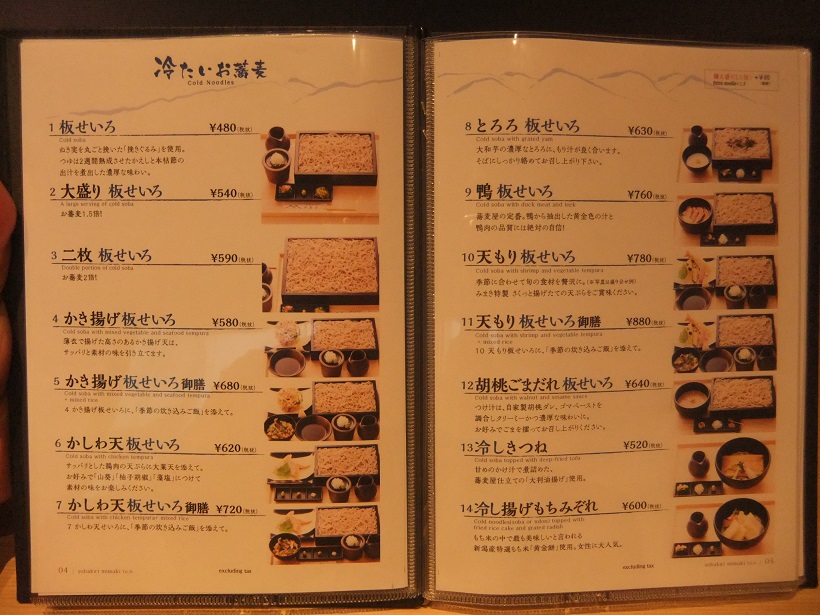 冷たいお蕎麦
Cold Noodles
1 板せいろ ¥480(税抜)
Cold soba
ぬき実を丸ごと挽いた「挽きぐるみ」を使用。
つゆは2週間熟成させたかえしと本枯節の
出汁を煮出した濃厚な味わい。
2 大盛り 板せいろ ¥540(税抜)
A large serving of cold soba
お蕎麦1.5倍!
3 二枚 板せいろ ¥590(税抜)
Double portion of cold soba
お蕎麦2倍!
4 かき揚げ板せいろ ¥580(税抜)
Cold soba with mixed vegetable and seafood tempura
薄衣で揚げた高さのあるかき揚げ天は、
サッパリと素材の味を引き立てます。
5 かき揚げ板せいろ御膳 ¥680(税抜)
Cold soba with mixed vegetable and seafood tempura
+ mixed rice
4 かき揚げ板せいろに、「季節の炊き込みご飯」を添えて。
6 かしわ天 板せいろ ¥620(税抜)
Cold soba with chicken tempura
サッパリとした鶏肉の天ぷらに大葉天を添えて。
お好みで「山葵」「柚子胡椒」「藻塩」につけて
素材の味をお楽しみください。
7 かしわ天 板せいろ御膳 ¥720(税抜)
Cold soba with chicken tempura+ mixed rice
7 かしわ天せいろに、「季節の炊き込みご飯」を添えて。
04
excluding tax
8 とろろ 板せいろ ¥630(税抜)
Cold soba with grated yam
大和芋の濃厚なとろろに、もり汁が良く合います。
そばにしっかり絡めてお召し上がり下さい。
9 鴨 板せいろ ¥760(税抜)
Cold soba with duck meat and leek
蕎麦屋の定番。鴨から抽出した黄金色の汁と
鴨肉の品質には絶対の自信!
10 天もり 板せいろ ¥780(税抜)
Cold soba with shrimp and vegetable tempura
季節に合わせて旬の食材を贅沢に。(※写真は盛り合せ例)
みまき特製 さくっと揚げたての天ぷらをご賞味ください。
11 天もり 板せいろ御膳 ¥880(税抜)
Cold soba with shrimp and vegetable tempura
+ mixed rice
10 天もり板せいろに、「季節の炊き込みご飯」を添えて。
12 胡桃ごまだれ 板せいろ ¥640(税抜)
Cold soba with walnut and sesame sauce
つけ汁は、自家製胡桃ダレ、ゴマペーストを
調合しクリーミーかつ濃厚な味わいに。
お好みでごまを擂ってお召し上がりください。
13 冷しきつね ¥520(税抜)
Cold soba topped with deep-fried tofu
甘めのかけ汁で煮詰めた、
蕎麦屋仕立ての「大判油揚げ」使用。
14 冷し揚げもちみぞれ ¥600(税抜)
Cold noodles(soba or udon) topped with
fried rice cake and grated radish
もち米の中で最も美味しいと言われる
新潟産特選もち米「黄金餅」使用。女性に大人気。
excluding tax